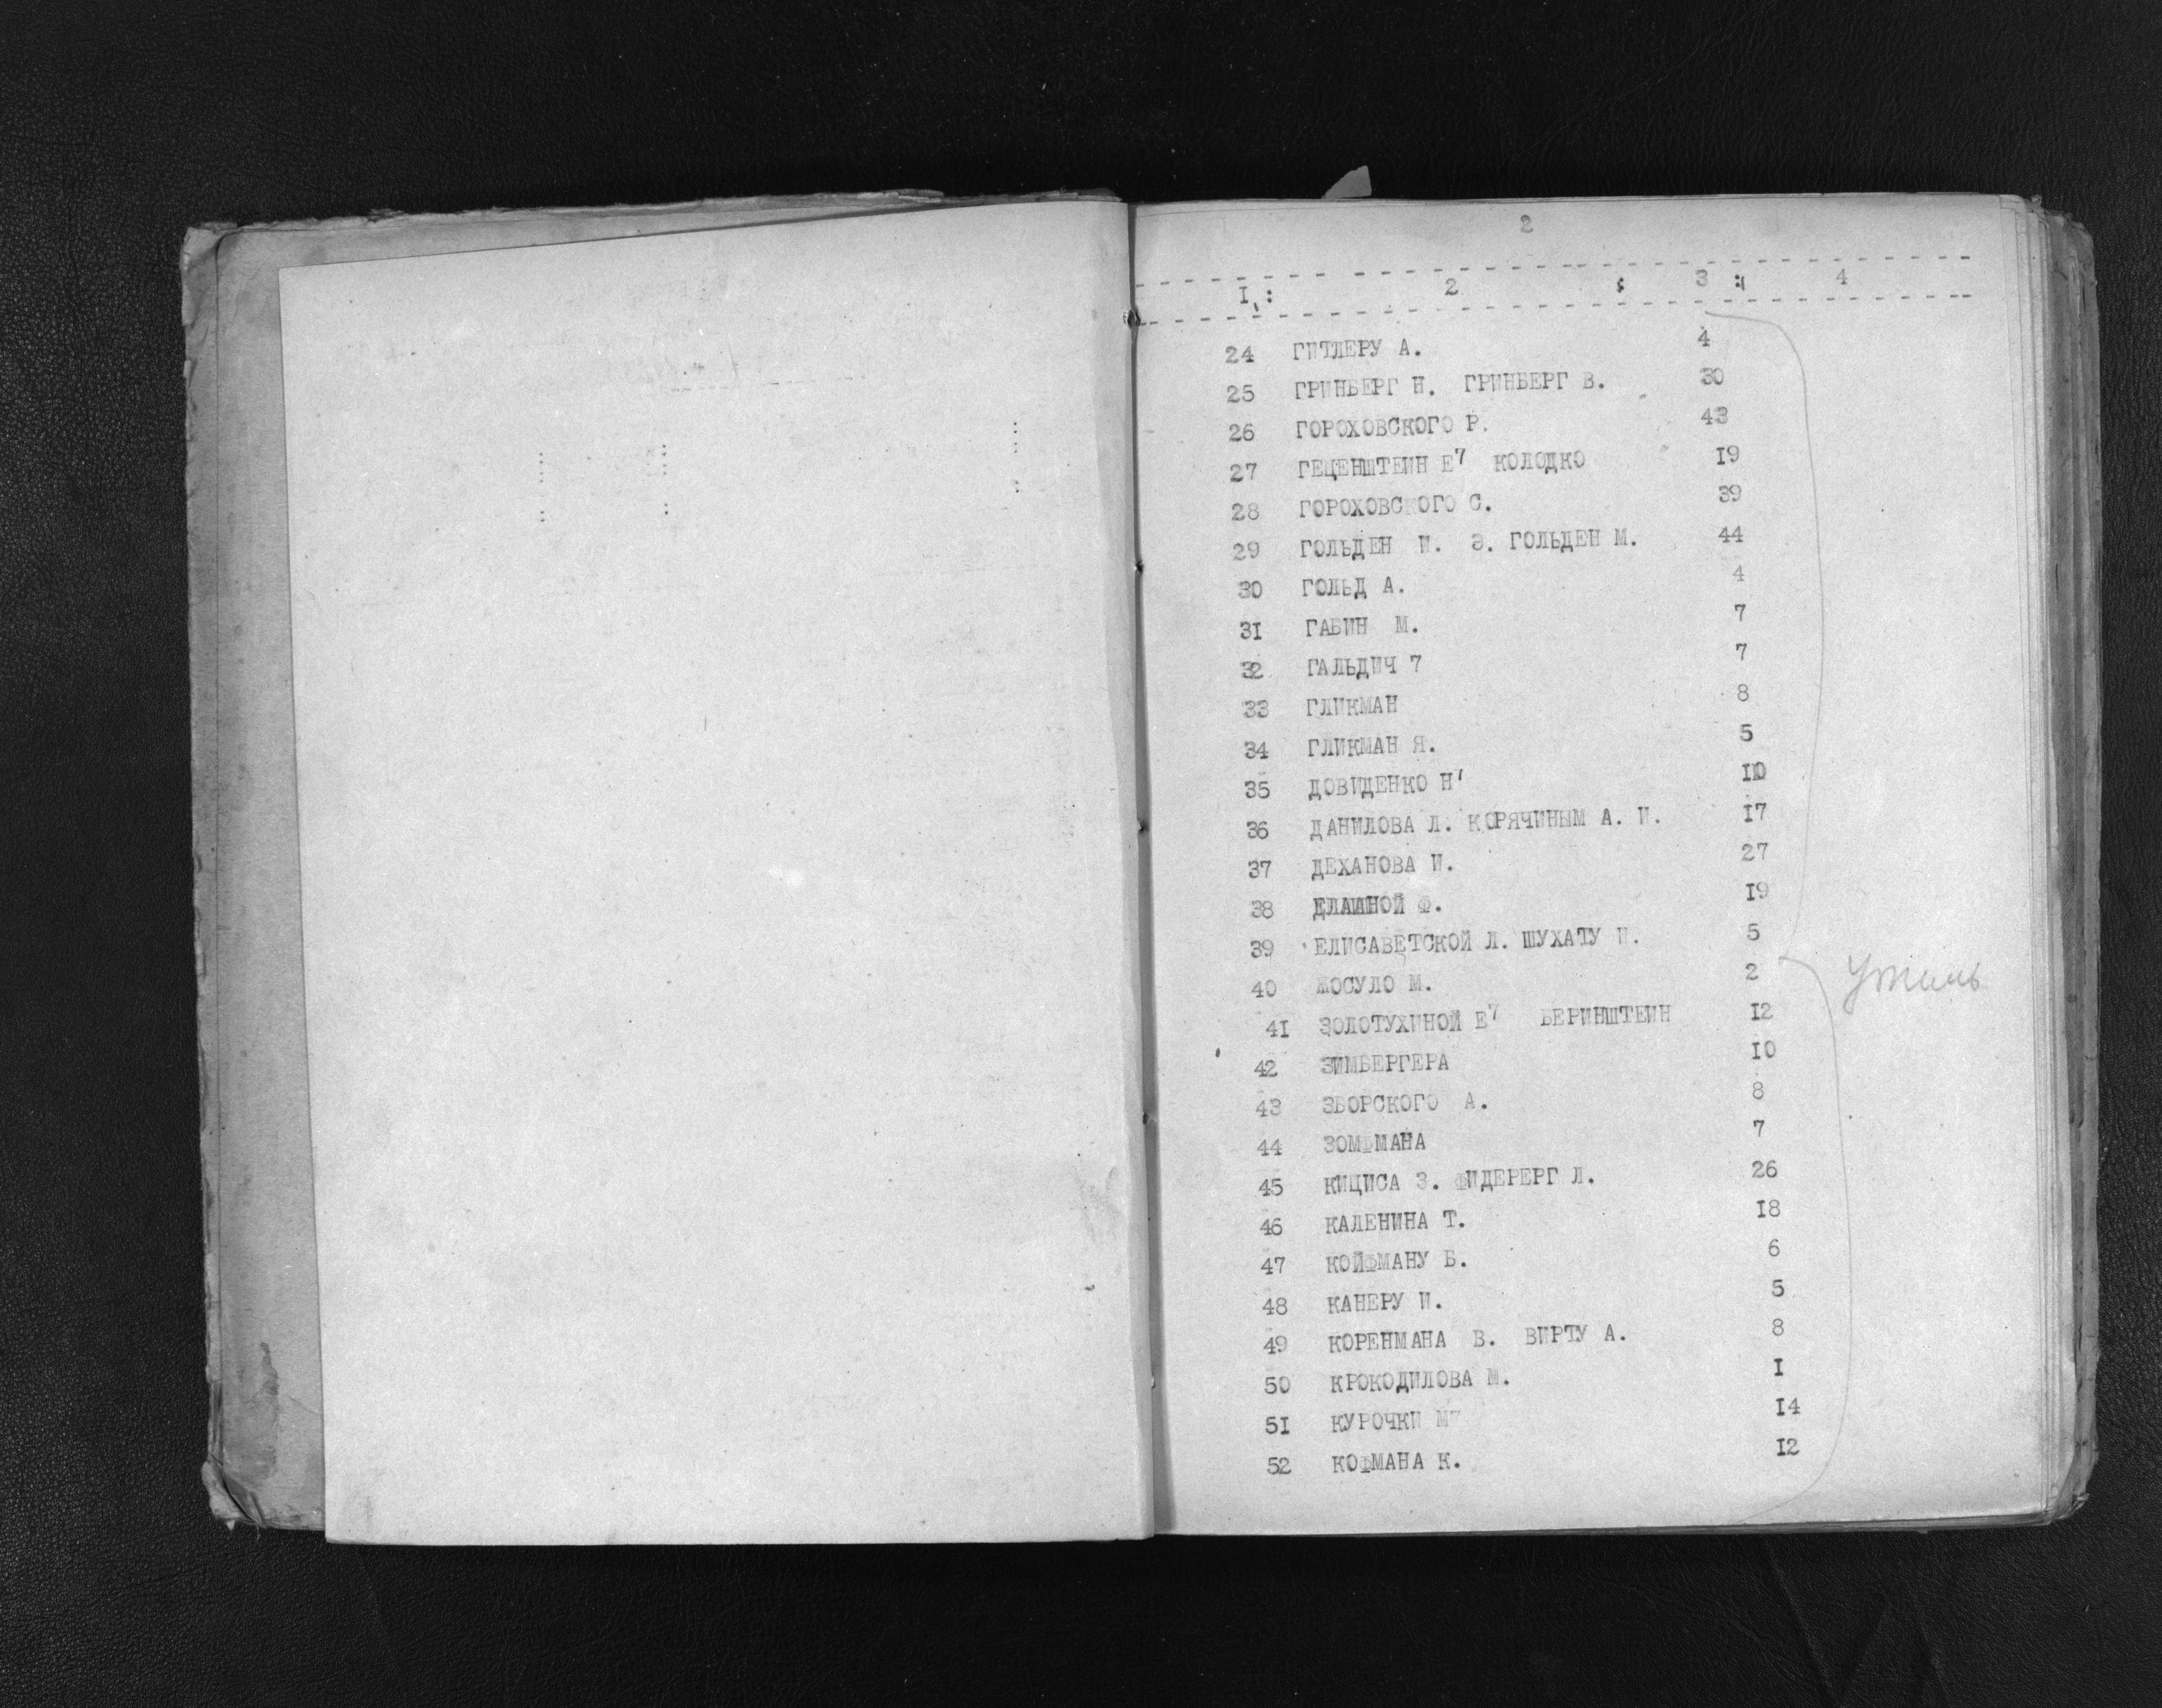 2
I : 2 : 3 : 4
24 ГИТЛЕРУ А. 4
25 ГРИНБЕРГ Н. ГРИНБЕРГ В. 30
26 ГОРОХОВСКОГО Р. 43
27 ГЕЦЕНШТЕИН Е7 КОЛОДКО I9
28 ГОРОХОВСКОГО С. 39
29 ГОЛЬДЕН И. Э. ГОЛЬДЕН М. 44
30 ГОЛЬД А. 4
31 ГАБИН М. 7
32 ГАЛЬДИЧ 7 7
33 ГЛИКМАН 8
34 ГЛИКМАН Я. 5
35 ДОВИДЕНКО Н' 10
36 ДАНИЛОВА Л. КОРЯЧИНЫМ А. И. I7
37 ДЕХАНОВА И. 27
38 Ф. I9
39 ЕЛИСАВЕТСКОЙ Л. ШУХАТУ И. 5
40 ЖОСУЛО М. 2
4I ЗОЛОТУХИНОЙ Е7 БЕРИНШТЕИН I2
42 ЗИМБЕРГЕРА I0
43 ЗБОРСКОГО А. 8
44 ЗОМФМАНА 7
45 КИЦИСА З. ФИДЕРЕРГ Л. 26
46 КАЛЕНИНА Т. I8
47 КОЙФМАНУ Б. 6
48 КАНЕРУ И. 5
49 КОРЕНМАНА В. ВИРТУ А. 8
50 КРОКОДИЛОВА М. I
5I КУРОЧКИ М7 I4
52 КОФМАНА К. I2
Утиль